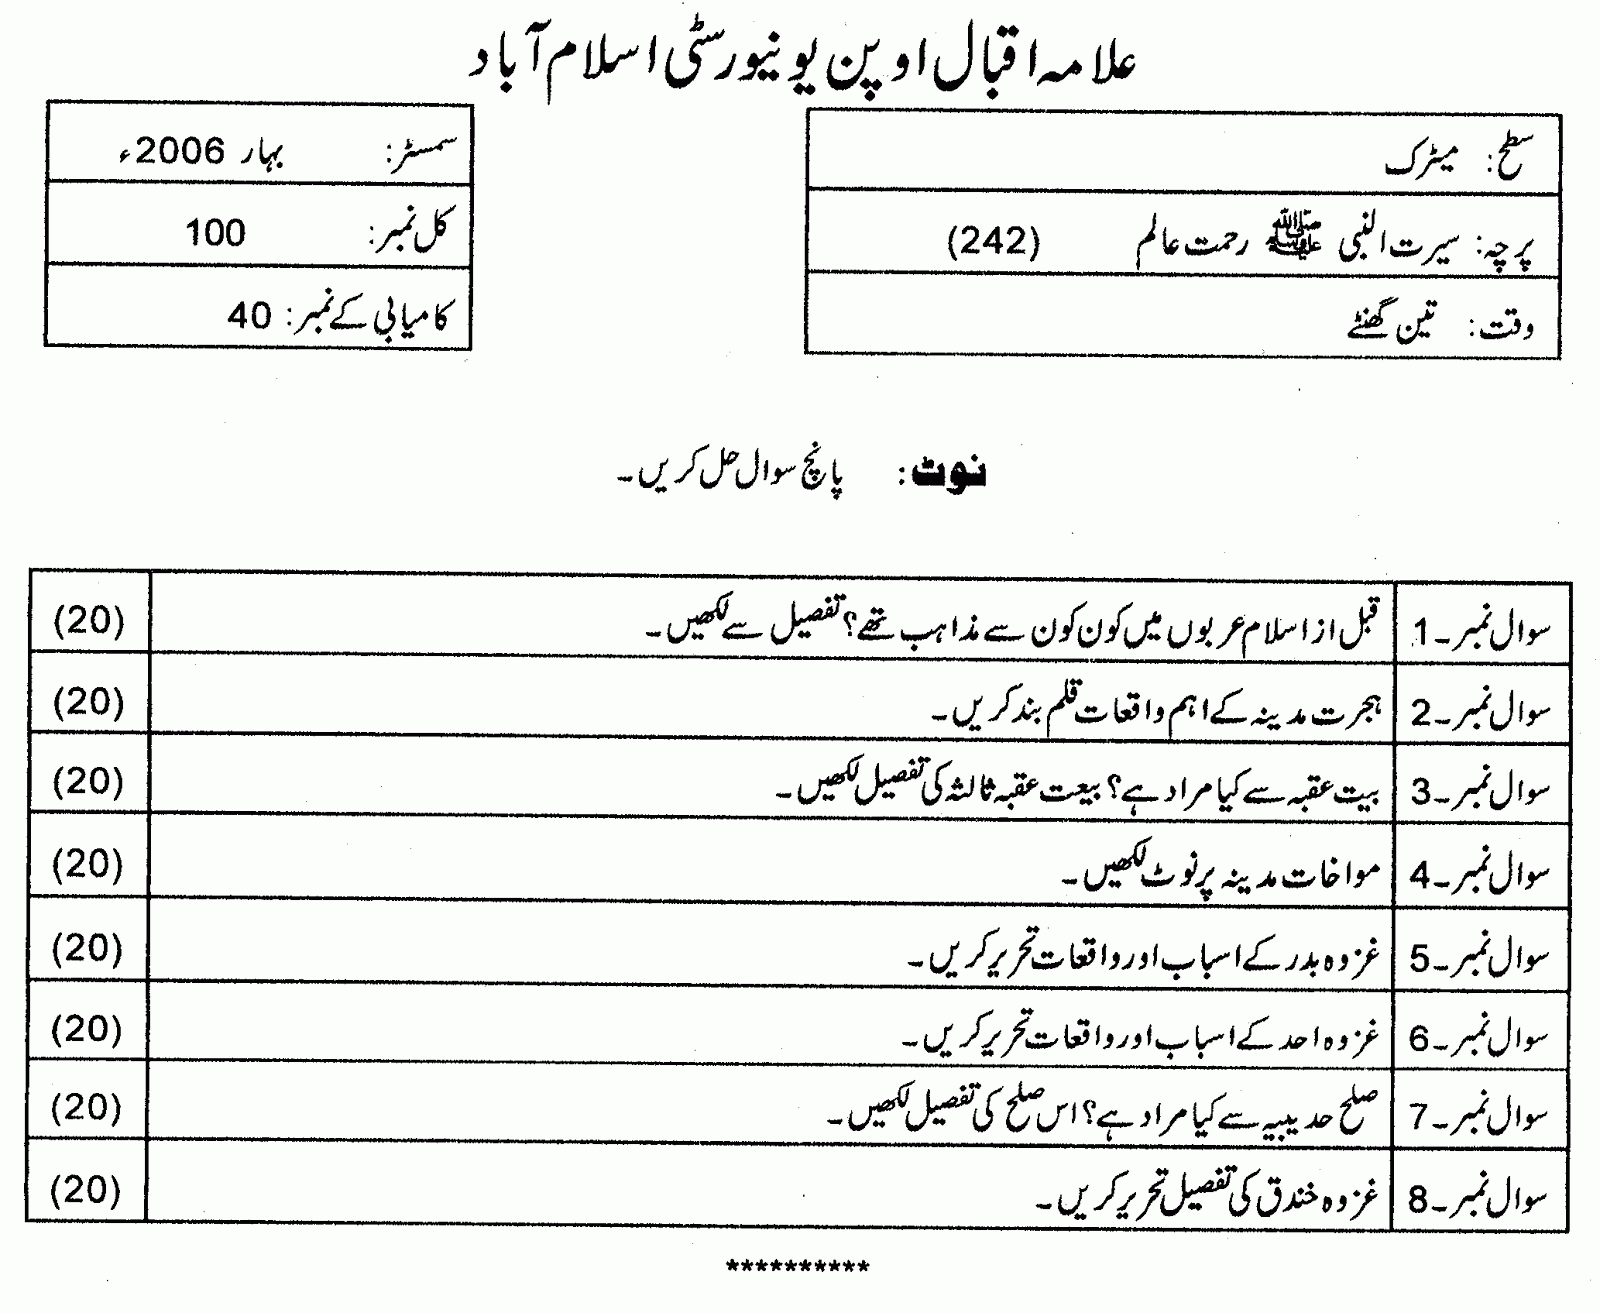 علامہ اقبال اوپن یونیورسٹی اسلام آباد
سطح: میٹرک
پرچہ: سیرت النبی ﷺ رحمت عالم (242)
وقت: تین گھنٹے
سمسٹر: بہار 2006ء
کل نمبر: 100
کامیابی کے نمبر: 40
نوٹ: پانچ سوال حل کریں۔
سوال نمبر۔1 قبل از اسلام عربوں میں کون کون سے مذاہب تھے؟ تفصیل سے لکھیں۔ (20)
سوال نمبر۔2 ہجرت مدینہ کے اہم واقعات قلم بند کریں۔ (20)
سوال نمبر۔3 بیت عقبہ سے کیا مراد ہے؟ بیعت عقبہ ثالثہ کی تفصیل لکھیں۔ (20)
سوال نمبر۔4 مواخات مدینہ پر نوٹ لکھیں۔ (20)
سوال نمبر۔5 غزوہ بدر کے اسباب اور واقعات تحریر کریں۔ (20)
سوال نمبر۔6 غزوہ احد کے اسباب اور واقعات تحریر کریں۔ (20)
سوال نمبر۔7 صلح حدیبیہ سے کیا مراد ہے؟ اس صلح کی تفصیل لکھیں۔ (20)
سوال نمبر۔8 غزوہ خندق کی تفصیل تحریر کریں۔ (20)
**********